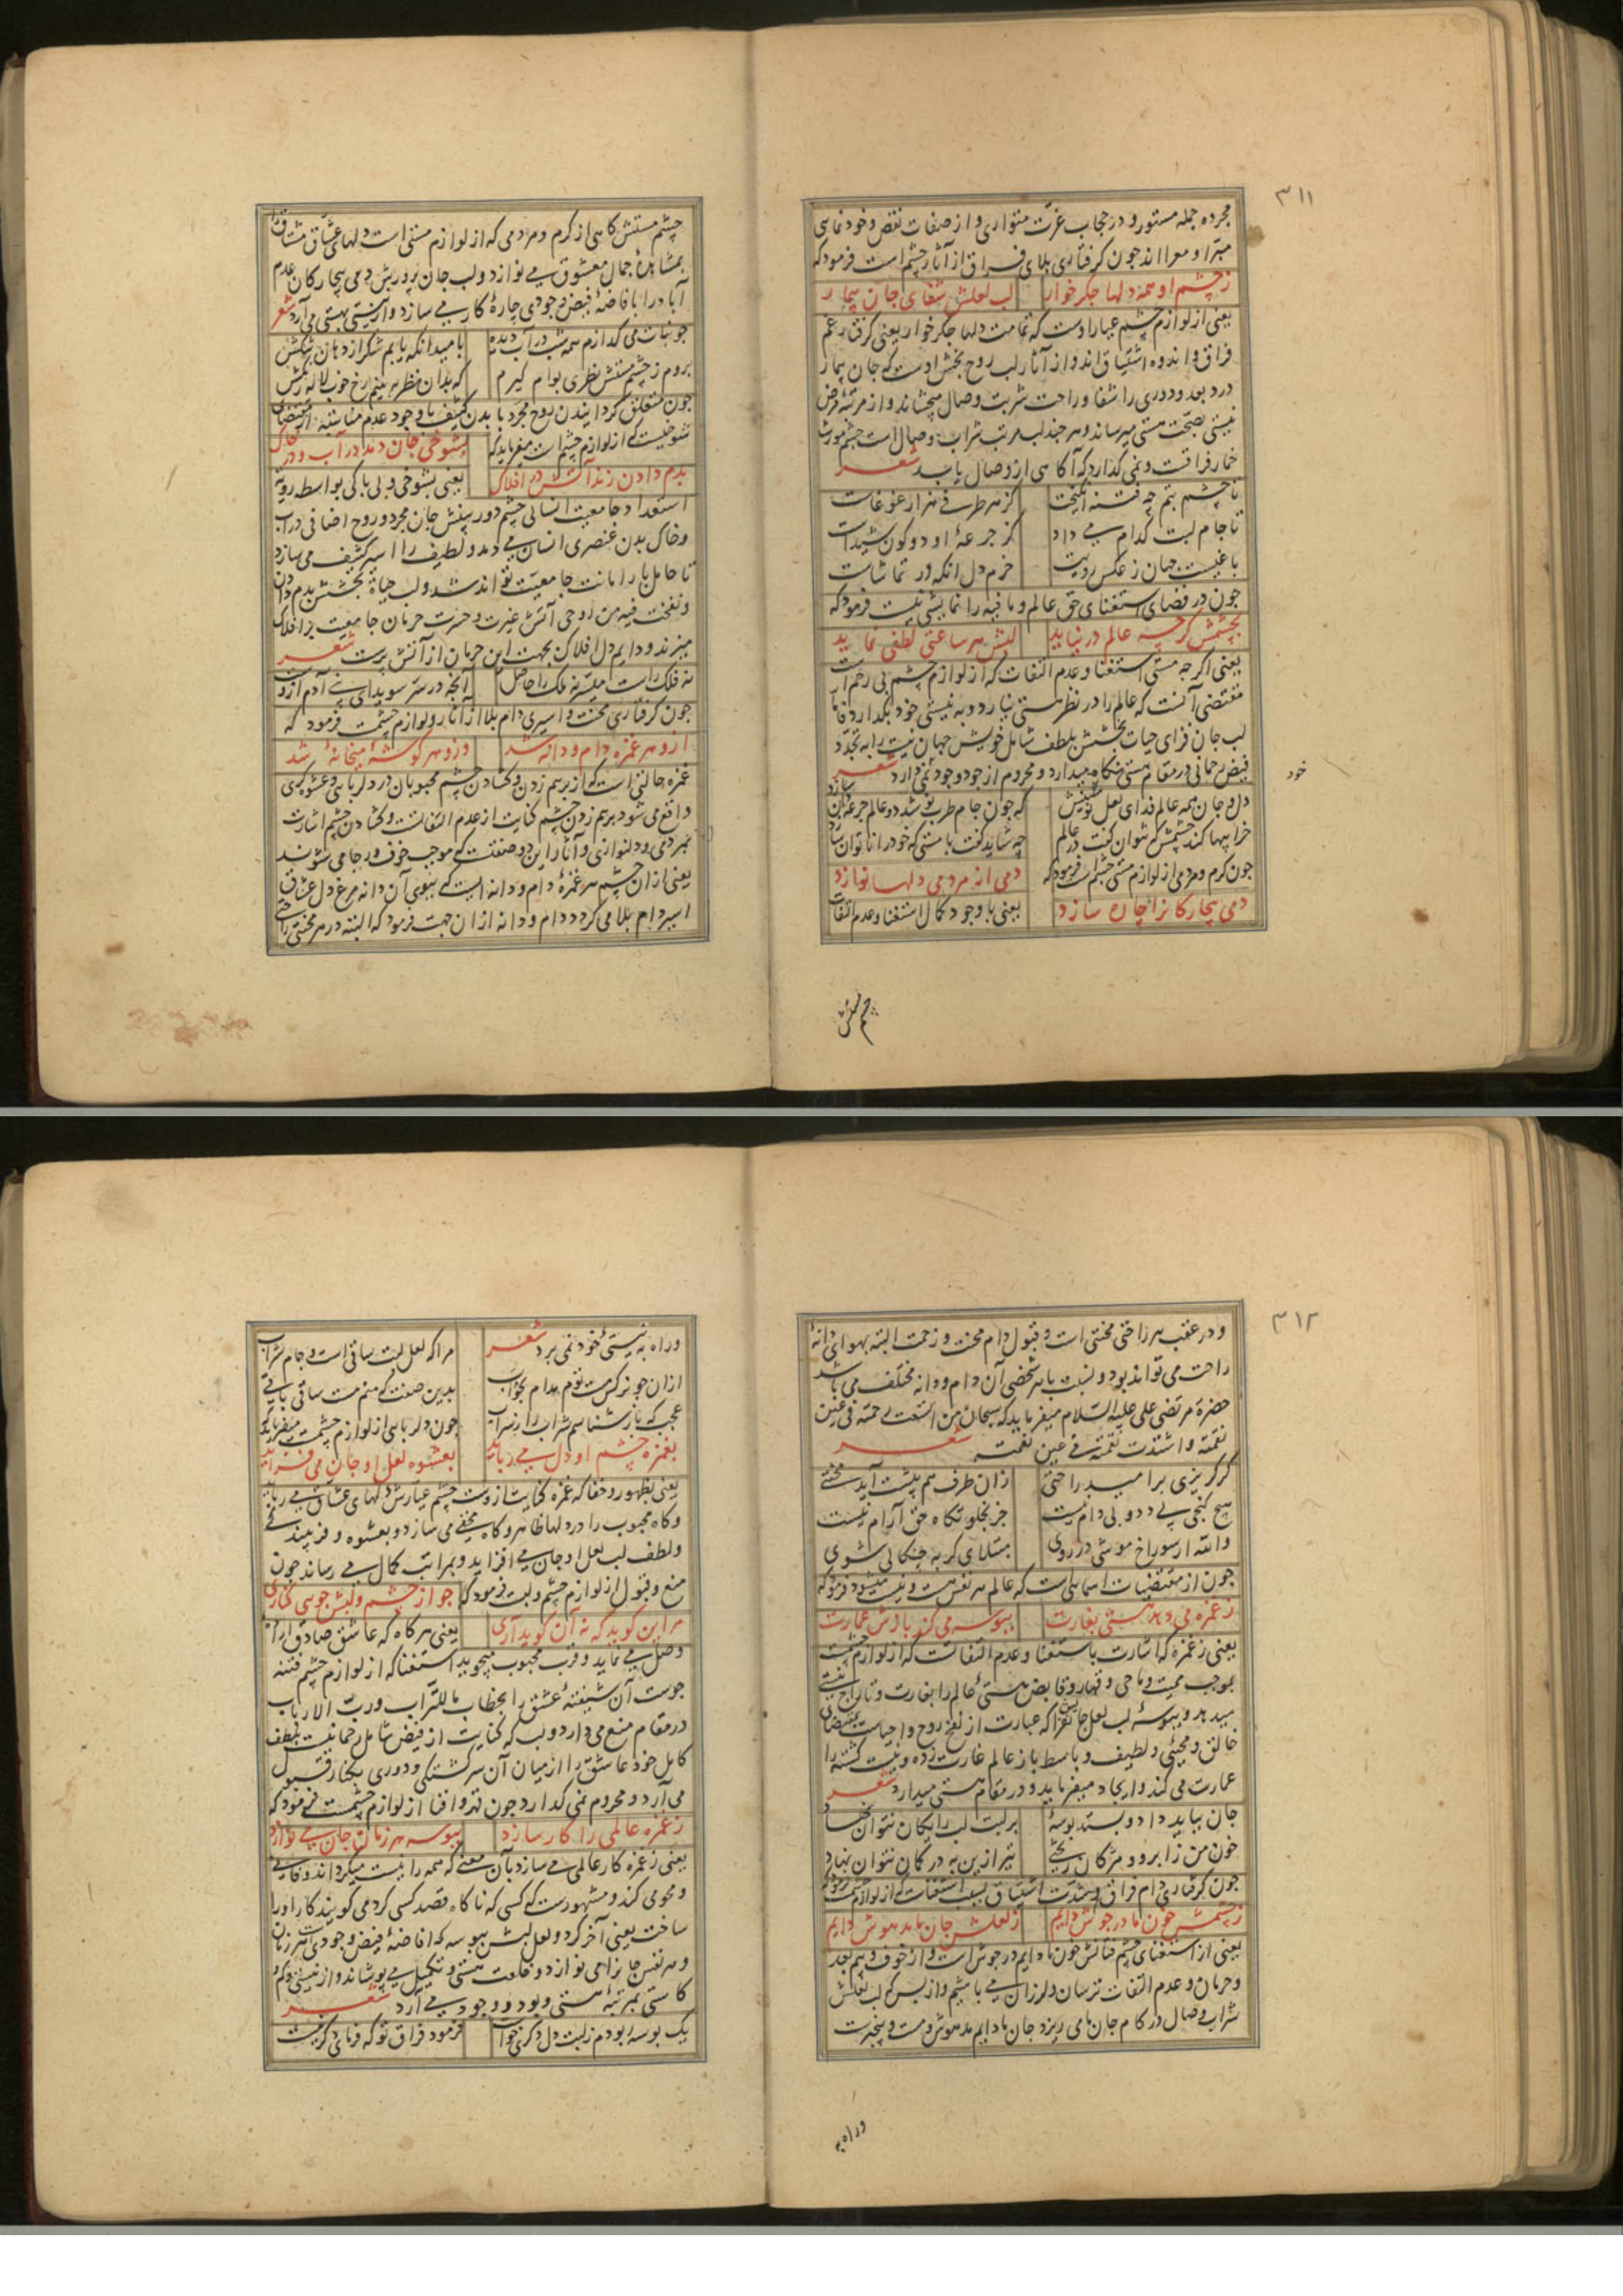 ٣١١
مجرده جمله مستور و در حجاب عزّت متواری و از صفات نقص و خودنمایی
مبرّا و معرا اند جون کرفتاری بلای فراق از آثار چشم است فرمود که
ز چشم او همه دلها جکر خوار
لب لعلش شفای جان بیمار
یعنی از لوازم چشم عیار اوست که تمامت دلها جکر خوار یعنی کرفتار غم
فراق و اندوه اشتیاق اند و از آثار لب روح بخش اوست که جان بیمار
درد بعد و دوری را شفا و راحت شربت وصال میچشاند و از مرتبه مرض
نیستی بصحّت هستی میرساند و هر چند لب مرتب شراب وصال است چشم مورث
خمار فراقت و نمی کذارد که آکاهی از وصال یابد شعر
تا چشم بتم چه فتنه انکیخت
کز هر طرفی هزار غوغاست
تا جام لبت کدام می داد
کز جرعهٔ او دو کون شیداست
باغیست جهان ز عکس رویت
خرم دل آنکه در تماشاست
جون در فضای استغنای حق عالم و ما فیه را نمایشی نیست فرمود که
بچشمش کرچه عالم در نیاید
لبش هر ساعتی لطفی نماید
یعنی اکر جه مستی استغنا و عدم التفات که از لوازم چشم بی رحم است
مقتضی آنست که عالم را در نظر هستی نیارد و به نیستی خود بکذارد فاما
لب جان فزای حیات بخشش بلطف شامل خویش جهان نیست را به تجدّد
فیض رحمانی در مقام هستی نکاه میدارد و محروم از جود وجود نمی دارد شعر
خود
دل و جان همه عالم فدای لعل نوشینش
که جون جام طرب نوشد دو عالم جرعه دان سازد
خرابیها کند چشمش که نتوان کفت در عالم
چه شاید کفت با مستی که خود را ناتوان سازد
جون کرم و مردمی از لوازم مستی چشم است فرمود که
دمی از مردمی دلها نوازد
دمی بیچارکانرا چاره سازد
یعنی با وجود کمال استغنا و عدم التفات
چشم مستش
چشم مستش کاهی از کرم و مردمی که از لوازم مستی است دلهای عشّاق مشتاق را
بمشاهدهٔ جمال معشوق می نوازد و لب جان پرورش دمی بیچارکان عدم
آباد را بافاضهٔ فیض وجودی چارهٔ کار می سازد و از نیستی بهستی می آرد شعر
جو نبات می کدازم همه شب در آب دیده
بامید انکه یابم شکر از دهان تنکش
بروم ز چشم مستش نظری بوام کیرم
که بدان نظر به بینم رخ خوب لاله رنکش
جون متعلق کردانیدن روح مجرد با بدن کثیف با وجود عدم مناسبت از مقتضای
شوخیست که از لوازم چشم است میفرماید که
بشوخی جان دمد در آب و در خاک
بدم دادن زند آتش در افلاک
یعنی بشوخی و بی باکی بواسطه رویة
استعداد جامعیت انسانی چشم دوربینش جان مجرد و روح اضافی در آب
و خاک بدن عنصری انسان می دمد و لطیف را اسیر کثیف می سازد
تا حامل بار امانت جامعیّت تواند شد و لب حیاة بخشش بدم دادن
و نفخت فیه من روحی آتش غیرت و حسرت حرمان جامعیت بر افلاک
میزند و دایم دل افلاک بجهت این حرمان از آتش پرست شعر
نه فلک راست میسّر نه ملک را حاصل
آنجه در سر سویدای بنی آدم ازوست
جون کرفتاری محنت و اسیری دام بلا از آثار و لوازم چشمست فرمود که
ازو هر غمزه دام و دانه شد
وزو هر کوشهٔ میخانهٔ شد
غمزه حالتی است که از برهم زدن و کشادن چشم محبوبان در دلربایی و عشوه کری
واقع می شود برهم زدن چشم کنایت از عدم التفاتست و کشادن چشم اشارت
بمردمی و دلنوازی و آثار این دو صفتست که موجب خوف و رجا می شوند
یعنی از ان چشم هر غمزهٔ دام و دانه ایست که ببوی آن دانه مرغ دل عشاق
اسیر دام بلا می کردد دام و دانه از ان جهت فرمود که البته در هر محنتی راحتی
٣١٢
و در عقب هر راحتی محنتی است و قبول دام محنت و زحمت البته بهوای دانهٔ
راحت می تواند بود و نسبت با هر شخصی آن دام و دانه مختلف می باشد
حضرة مرتضی علی علیه السّلام میفرماید که سبحان من اتسعت رحمته فی عین
نقمته و اشتدّت نقمته فی عین نعمته شعر
کر کریزی بر امید راحتی
زان طرف هم پیشت آید محنتی
هیچ کنجی بی دد و بی دام نیست
جز بخلوتکاه حق آرام نیست
والله ار سوراخ موشی در روی
مبتلای کربه چنکالی شوی
جون از مقتضیات اسمایی است که عالم هر نفس هست و نیست میشود فرمود که
ز غمزه می دهد هستی بغارت
ببوسه می کند بازش عمارت
یعنی ز غمزه که اشارت باستغنا و عدم التفاتست که از لوازم چشمست
بموجب ممیت و ماحی و قهار و قابض هستی عالم را بغارت و تاراج نیستی
میدهد و ببوسهٔ لب لعل جانفزایش که عبارت از نفخ روح و احیاست بمقتضای
خالق و محیی و لطیف و باسط باز عالم غارت زده و نیست کشته را
عمارت می کند و ایجاد میفرماید و در مقام هستی میدارد شعر
جان بباید داد و بستد بوسهٔ
بر لبت لب رایکان نتوان نهاد
خون من ز ابرو و مژکان ریختی
تیر ازین به در کمان نتوان نهاد
جون کرفتاری دام فراق و شدّت اشتیاق بسبب استغناست که از لوازم چشمست فرمود که
ز چشمش خون ما در جوش دایم
ز لعلش جان ما مدهوش دایم
یعنی از استغنای چشم فتانش خون ما دایم در جوش است و از خوف و بیم بعد
و حرمان و عدم التفات ترسان و لرزان می باشیم و از بس که لب لعلش
شراب وصال در کام جان ما می ریزد جان ما دایم مدهوش و مست و بیخبرست
وراه به
وراه به نیستی خود نمی برد شعر
مرا که لعل لبت ساقی است و جام شراب
ازان چو نرکس مست توم مدام بخواب
بدین صفت که منم مست ساقی باقی
عجب که باز شناسم شراب را ز سراب
جون دلربایی از لوازم چشمست میفرماید که
بغمزه چشم او دل می رباید
بعشوه لعل او جان می فزاید
یعنی بظهور و خفا که غمزه کنایت ازوست چشم عیارش دلهای عشاق می رباید
و کاه محبوب را در دلها ظاهر و کاه مخفی می سازد و بعشوه و فریبندکی
و لطف لب لعل او جان می افزاید و بمراتب کمال می رساند جون
منع و قبول از لوازم چشم و لبست فرمود که
جو از چشم و لبش جویی کناری
مر این کوید که نه آن کوید آری
یعنی هر کاه که عاشق صادق ارادهٔ
وصل می نماید و قرب محبوب میجوید استغنا که از لوازم چشم فتنه
جوست آن شیفتهٔ عشق را بخطاب ما للتّراب و ربّ الارباب
در مقام منع می دارد و لب که کنایت از فیض شامل رحمانیست بلطف
کامل خود عاشق را از میان آن سرکشتکی و دوری بکنار قبول
می آرد و محروم نمی کذارد جون قهر و افنا از لوازم چشمست فرمود که
ز غمزه عالمی را کار سازد
ببوسه هر زمان جان می نوازد
یعنی ز غمزه کار عالمی می سازد بآن معنی که همه را نیست میکرداند و فانی
و محو می کند و مشهورست که کسی که ناکاه قصد کسی کرد می کویند کار او را
ساخت یعنی آخر کرد و لعل لبش ببوسه که افاضهٔ فیض وجودی است هر زمان
و هر نفس جانرا می نوازد و خلعت هستی و تکمیل می پوشاند و از نیستی و کم و
کاستی بمرتبهٔ هستی و بود و وجود می آرد شعر
یک بوسه ربودم ز لبت دل دکری خواست
فرمود فراق تو که فرمای دکر نیست